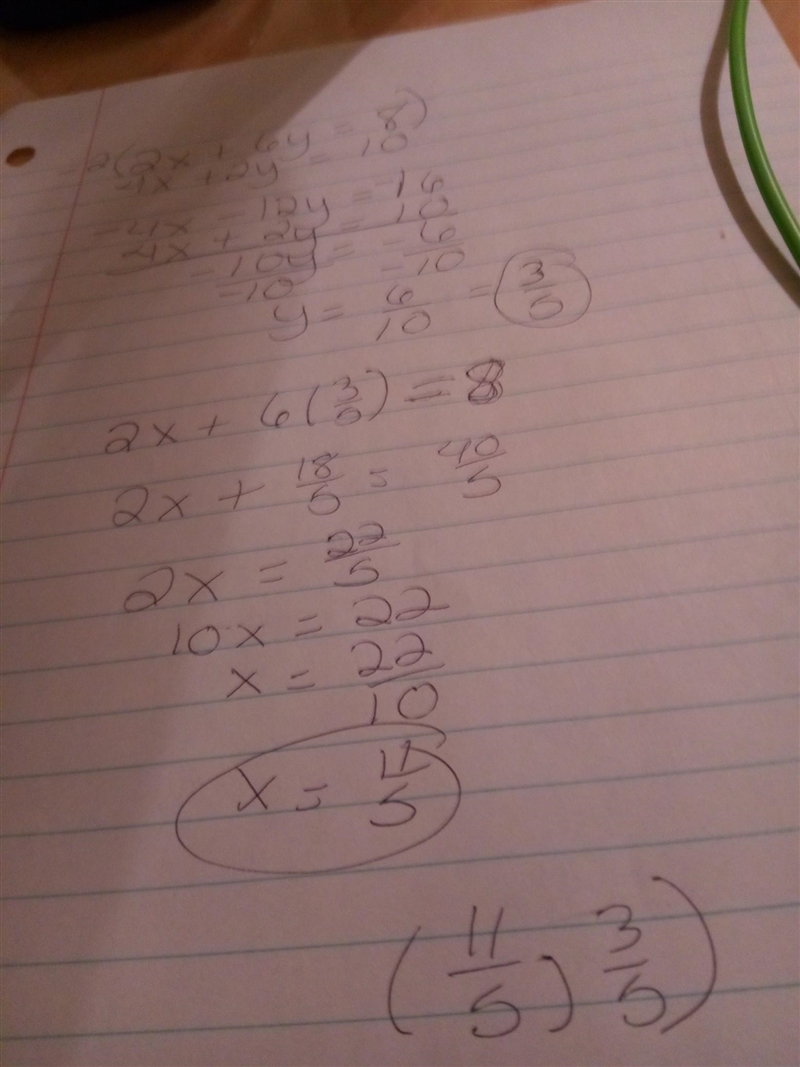 -2(2x + 6y = 8)
4x + 2y = 10
-4x - 12y = -16
4x + 2y = 10
-10y = -6
-10 -10
y = 6/10 = 3/5
2x + 6(3/5) = 8
2x + 18/5 = 40/5
2x = 22/5
10x = 22
x = 22/10
x = 11/5
(11/5, 3/5)